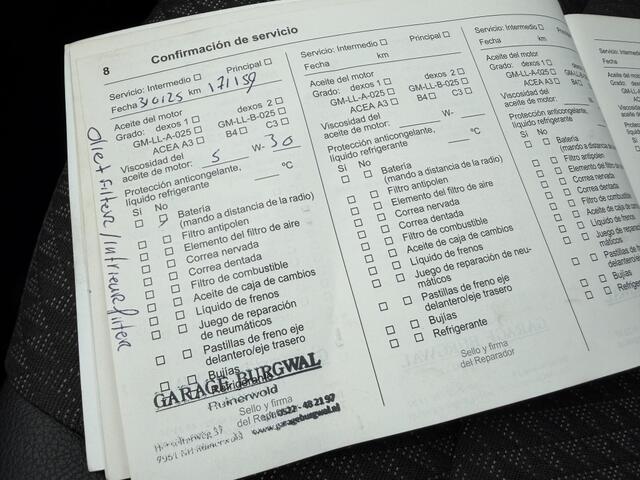 8
Confirmación de servicio
Servicio: Intermedio Principal
Fecha 310125 km 171159
Aceite del motor
Grado: dexos 1 dexos 2
GM-LL-A-025 GM-LL-B-025
ACEA A3 B4 C3
Viscosidad del
aceite de motor: 5 W- 30
Protección anticongelante,
líquido refrigerante °C
Si No
Batería
(mando a distancia de la radio)
Filtro antipolen
Elemento del filtro de aire
Correa nervada
Correa dentada
Filtro de combustible
Aceite de caja de cambios
Líquido de frenos
Juego de reparación
de neumáticos
Pastillas de freno eje
delantero/eje trasero
Bujías
Refrigerante
Sello y firma
del
GARAGE BURGWAL
Ruinerwold
0522 - 48 21 97
www.garageburgwal.nl
Servicio: Intermedio Principal
Fecha km
Aceite del motor
Grado: dexos 1 dexos 2
GM-LL-A-025 GM-LL-B-025
ACEA A3 B4 C3
Viscosidad del
aceite de motor: W-
Protección anticongelante,
líquido refrigerante °C
Si No
Batería
(mando a distancia de la radio)
Filtro antipolen
Elemento del filtro de aire
Correa nervada
Correa dentada
Filtro de combustible
Aceite de caja de cambios
Líquido de frenos
Juego de reparación de neu-
máticos
Pastillas de freno eje
delantero/eje trasero
Bujías
Refrigerante
Sello y firma
del Reparador
Servicio: Intermedio
Fecha km
Aceite del motor
Grado: dexos 1
GM-LL-A-025
ACEA A3
Viscosidad del
aceite de motor:
Protección anticongelante,
líquido refrigerante
Si No
Batería
(mando a
Filtro antipolen
Elemento del filtro
Correa nervada
Correa dentada
Filtro de combus
Aceite de caja de
Líquido de frenos
Juego de repara
máticos
Pastillas de
delantero/eje
Bujías
Refrigerante